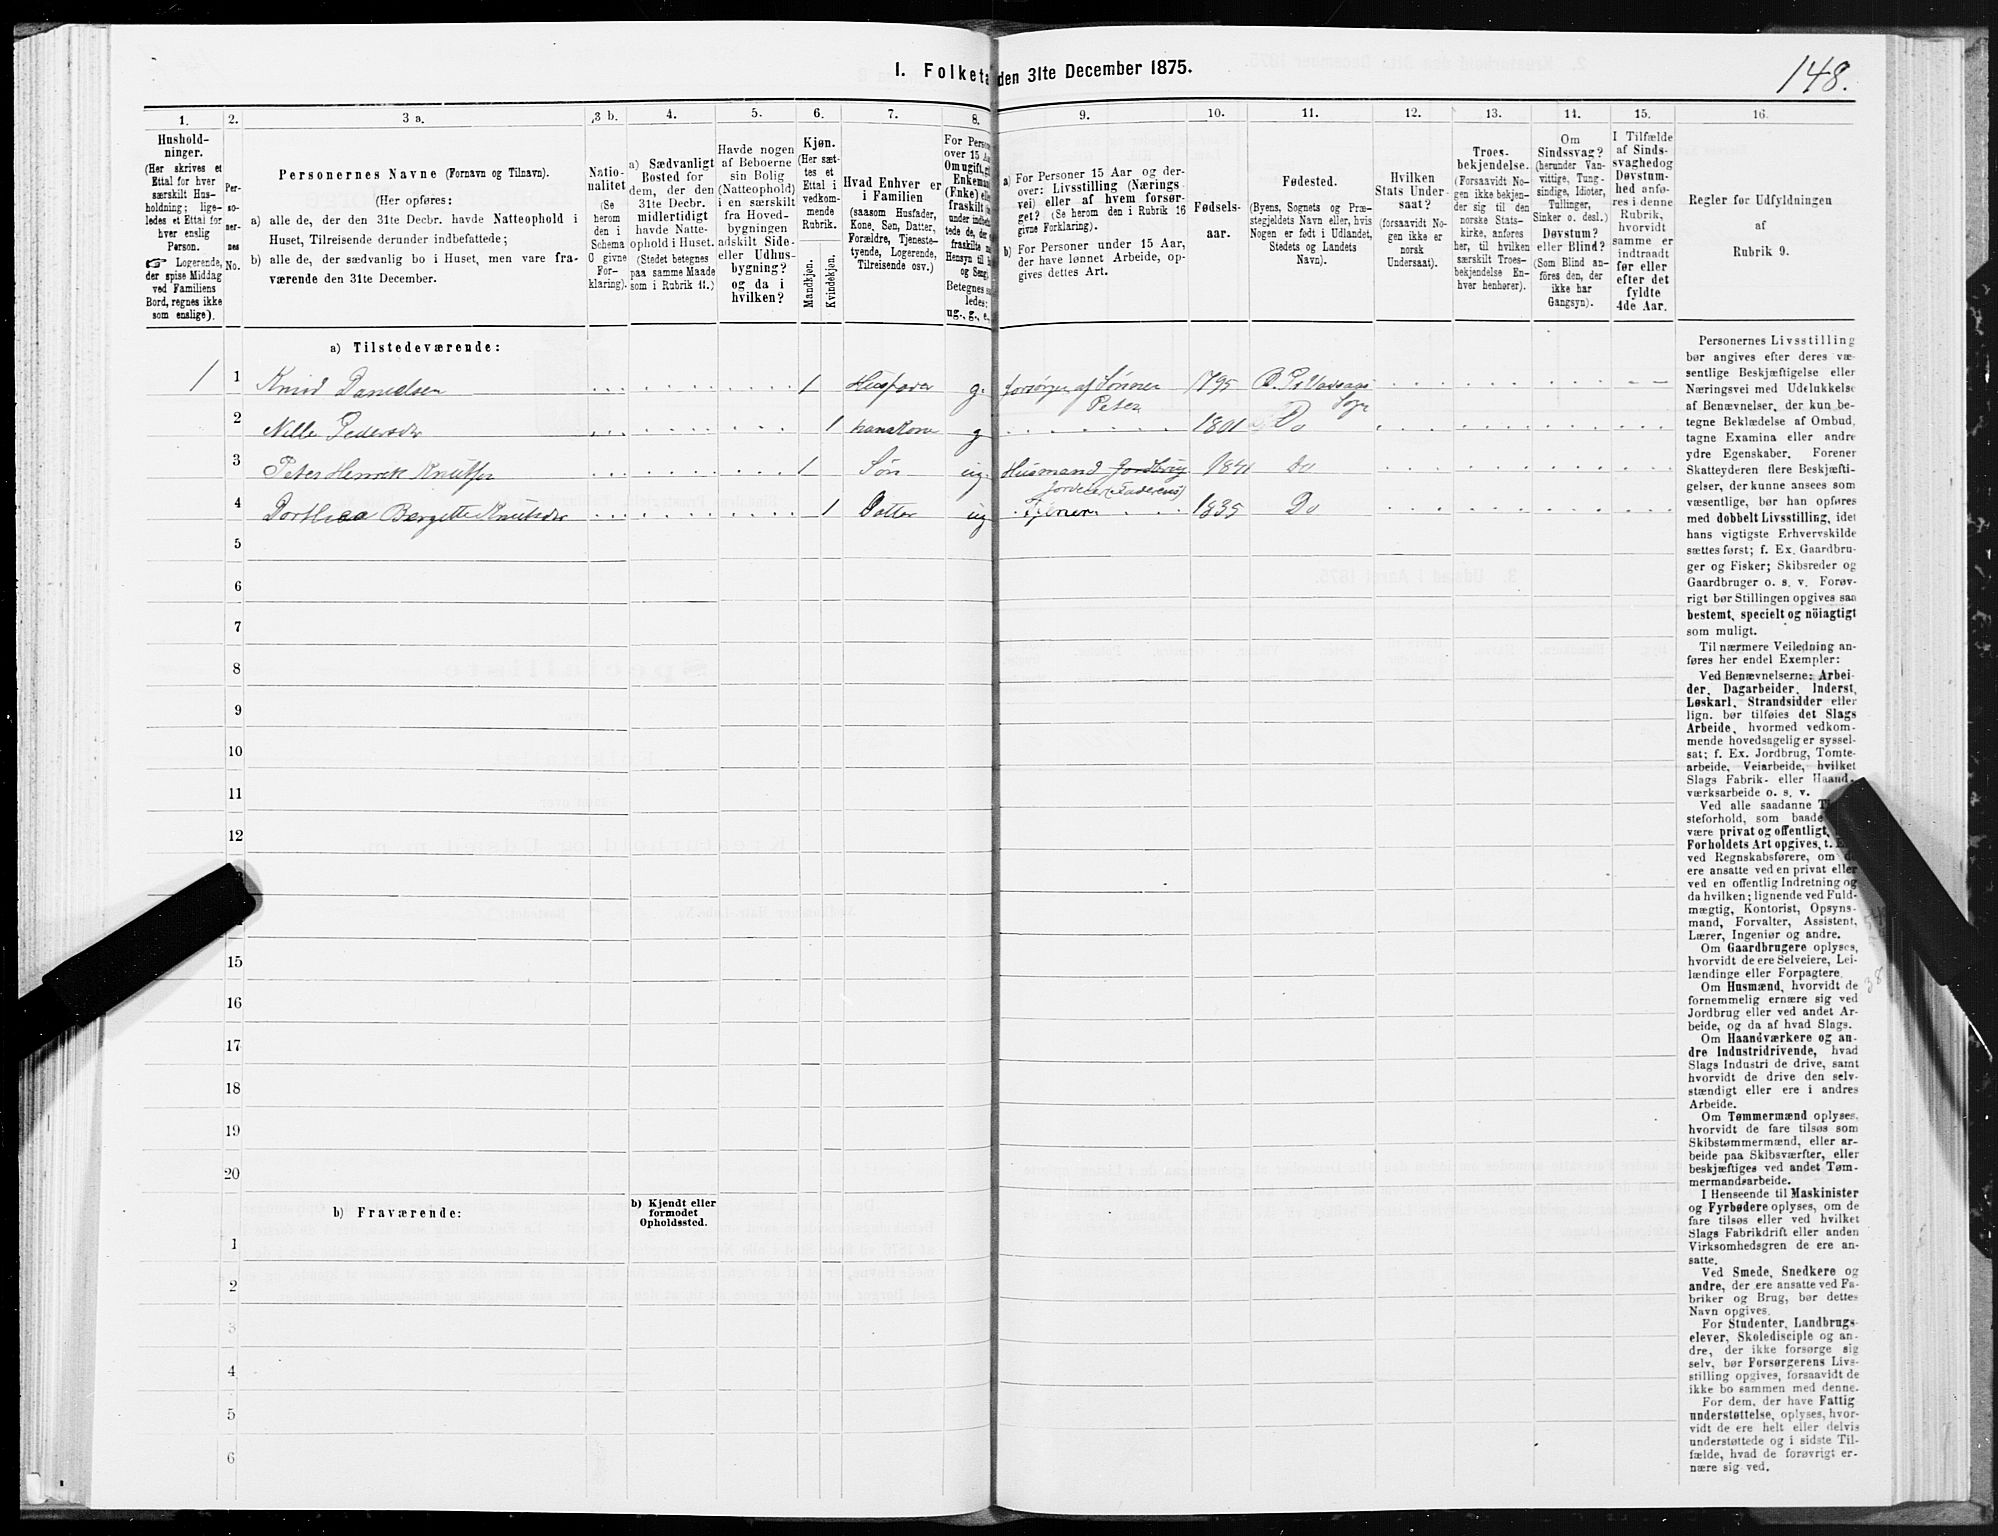 148.
I. Folketa den 31te December 1875.
1. 2. 3 a. 3 b. 4. 5. 6. 7. 8. 9. 10. 11. 12. 13. 14. 15. 16.
Hushold-
ninger.
(Her skrives et
Ettal for hver
særskilt Hus-
holdning; lige-
ledes et Ettal for
hver enslig
Person.
☞ Logerende,
der spise Middag
ved Familiens
Bord, regnes ikke
som enslige).
Per-
so-
ner-
nes
No.
Personernes Navne (Fornavn og Tilnavn).
(Her opføres:
a) alle de, der den 31te Decbr. havde Natteophold i
Huset, Tilreisende derunder indbefattede;
b) alle de, der sædvanlig bo i Huset, men vare fra-
værende den 31te December.
Natio-
nalitet
(Se
herom
den i
Schema
O givne
For-
klaring).
a) Sædvanligt
Bosted for
dem, der den
31te Decbr.
midlertidigt
havde Natte-
ophold i Huset.
(Stedet betegnes
paa samme Maade
som i Rubrik 11.)
Havde nogen
af Beboerne
sin Bolig
(Natteophold)
i en særskilt
fra Hoved-
bygningen
adskilt Side-
eller Udhus-
bygning?
og da i
hvilken?
Kjøn.
(Her sæt-
tes et
Ettal i
vedkom-
mende
Rubrik.
Mandkjøn.
Kvindekjøn.
Hvad Enhver er
i Familien
(saasom Husfader,
Kone, Søn, Datter,
Forældre, Tjeneste-
tyende, Logerende,
Tilreisende osv.)
For Person
over 15 Aa
Omugift, g
Enkeman
(Enke) elle
fraskilt
under indbe
tede de, der
fraskilte m
Hensyn til
og Seng.
Betegnes s
ledes:
ug., g., e.,
a) For Personer 15 Aar og der-
over: Livsstilling (Nærings-
vei) eller af hvem forsør-
get? (Se herom den i Rubrik 16
givne Forklaring).
b) For Personer under 15 Aar,
der have lønnet Arbeide, op-
gives dettes Art.
Fødsels-
aar.
Fødested.
(Byens, Sognets og Præ-
stegjeldets Navn eller, hvis
Nogen er født i Udlandet,
Stedets og Landets
Navn).
Hvilken
Stats Under-
saat?
(forsaavidt No-
gen ikke er
norsk
Undersaat).
Troes-
bekjendelse.
(Forsaavidt No-
gen ikke bekjen-
der sig til den
norske Stats-
kirke, anføres
her, til hvilken
særskilt Troes-
bekjendelse En-
hver henhører).
Om
Sindssvag?
(herunder Van-
vittige, Tung-
sindige, Idioter,
Tullinger,
Sinker o. desl.)
Døvstum?
eller Blind?
(Som Blind an-
føres den, der
ikke har
Gangsyn).
I Tilfælde
af Sinds-
svaghed og
Døvstum-
hed anfø-
res i denne
Rubrik,
hvorvidt
samme er
indtraadt
før eller
efter det
fyldte
4de Aar.
Regler for Udfyldningen
af
Rubrik 9.
a) Tilstedeværende:
1 1 Knud Danielsen 1 Husfader g. forsørges af Sønnen 1795
Peter
Sogn
2 Nille Pedersdr 1 hans kone g 1801 Do
3 Peter Henrik Knutsen 1 Søn ug. Husmand Jordbrug 1841 Do
4 Dorthea Bergette Knutsdr 1 Datter ug Tjener 1835 Do
5
6
7
8
9
10
11
12
15
16
17
18
19
20
b) Fraværende:
b) Kjendt eller
formodet
Opholdssted.
1
2
3
4
5
6
Personernes Livsstilling
bør angives efter deres væ-
sentlige Beskjæftigelse eller
Næringsvei med Udelukkelse
af Benævnelser, der kun be-
tegne Beklædelse af Ombud,
tagne Examina eller andre
ydre Egenskaber. Forener
Skatteyderen flere Beskjæfti-
gelser, der kunne ansees som
væsentlige, bør han opføres
med dobbelt Livsstilling, idet
hans vigtigste Erhvervskilde
sættes først; f. Ex. Gaardbru-
ger og Fisker; Skibsreder og
Gaardbruger o. s. v. Forøv-
rigt bør Stillingen opgives saa
bestemt, specielt og nöiagtigt
som muligt.
Til nærmere Veiledning an-
føres her endel Exempler:
Ved Benævnelserne: Arbei-
der, Dagarbeider, Inderst,
Løskarl, Strandsidder eller
lign. bør tilføies det Slags
Arbeide, hvormed vedkom-
mende hovedsagelig er syssel-
sat; f. Ex. Jordbrug, Tomte-
arbeide, Veiarbeide, hvilket
Slags Fabrik- eller Haand-
værksarbeide o. s. v.
Ved alle saadanne
steforhold, som baade
være privat og offentligt,
Forholdets Art opgives, t. E
ved Regnskabsførere, om de
ere ansatte ved en privat eller
ved en offentlig Indretning og
da hvilken; lignende ved Fuld-
mægtig, Kontorist, Opsyns-
mand, Forvalter, Assistent,
Lærer, Ingeniør og andre.
Om Gaardbrugere oplyses,
hvorvidt de ere Selveiere, Lei-
lændinge eller Forpagtere.
Om Husmænd, hvorvidt de
fornemmelig ernære sig ved
Jordbrug eller ved andet Ar-
beide, og da af hvad Slags.
Om Haandværkere og an-
dre Industridrivende, hvad
Slags Industri de drive, samt
hvorvidt de drive den selv-
stændigt eller ere i andres
Arbeide.
Om Tømmermænd oplyses,
hvorvidt de fare tilsøs som
Skibstømmermænd, eller ar-
beide paa Skibsværfter, eller
beskjæftiges ved andet Tøm-
mermandsarbeide.
I Henseende til Maskinister
og Fyrbødere oplyses, om de
fare tilsøs eller ved hvilket
Slags Fabrikdrift eller anden
Virksomhedsgren de ere an-
satte.
Ved Smede, Snedkere og
andre, der ere ansatte ved Fa-
briker og Brug, bør dettes
Navn opgives.
For Studenter, Landbrugs-
elever, Skoledisciple og an-
dre, der ikke forsørge sig
selv, bør Forsørgerens Livs-
stilling opgives, forsaavidt de
ikke bo sammen med denne.
For dem, der have Fattig
understøttelse, oplyses, hvor-
vidt de ere helt eller delvis
understøttede og i sidste Til-
fælde, hvad de forøvrigt er-
nære sig ved.